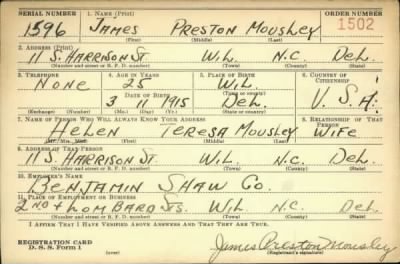 SERIAL NUMBER 1. NAME (Print) ORDER NUMBER
1596 JAMES PRESTON MOUSLEY 1502
(First) (Middle) (Last)
2. ADDRESS (Print)
11 S. HARRISON ST WIL. N.C. DEL.
(Number and street or R. F. D. number) (Town) (County) (State)
3. TELEPHONE 4. AGE IN YEARS 5. PLACE OF BIRTH 6. COUNTRY OF CITIZENSHIP
NONE 25 WIL.
DATE OF BIRTH (Town or county)
3 11 1915 DEL. U.S.A.
(Exchange) (Number) (Mo.) (Day) (Yr.) (State or country)
7. NAME OF PERSON WHO WILL ALWAYS KNOW YOUR ADDRESS 8. RELATIONSHIP OF THAT PERSON
HELEN TERESA MOUSLEY WIFE
(Mr., Mrs., Miss) (First) (Middle) (Last)
9. ADDRESS OF THAT PERSON
11 S. HARRISON ST. WIL. N.C. DEL.
(Number and street or R. F. D. number) (Town) (County) (State)
10. EMPLOYER'S NAME
BENJAMIN SHAW CO.
11. PLACE OF EMPLOYMENT OR BUSINESS
2ND + LOMBARD STS. WIL. N.C. DEL.
(Number and street or R. F. D. number) (Town) (County) (State)
I AFFIRM THAT I HAVE VERIFIED ABOVE ANSWERS AND THAT THEY ARE TRUE.
REGISTRATION CARD
D. S. S. Form 1 James Preston Mousley
(over) (Registrant's signature)